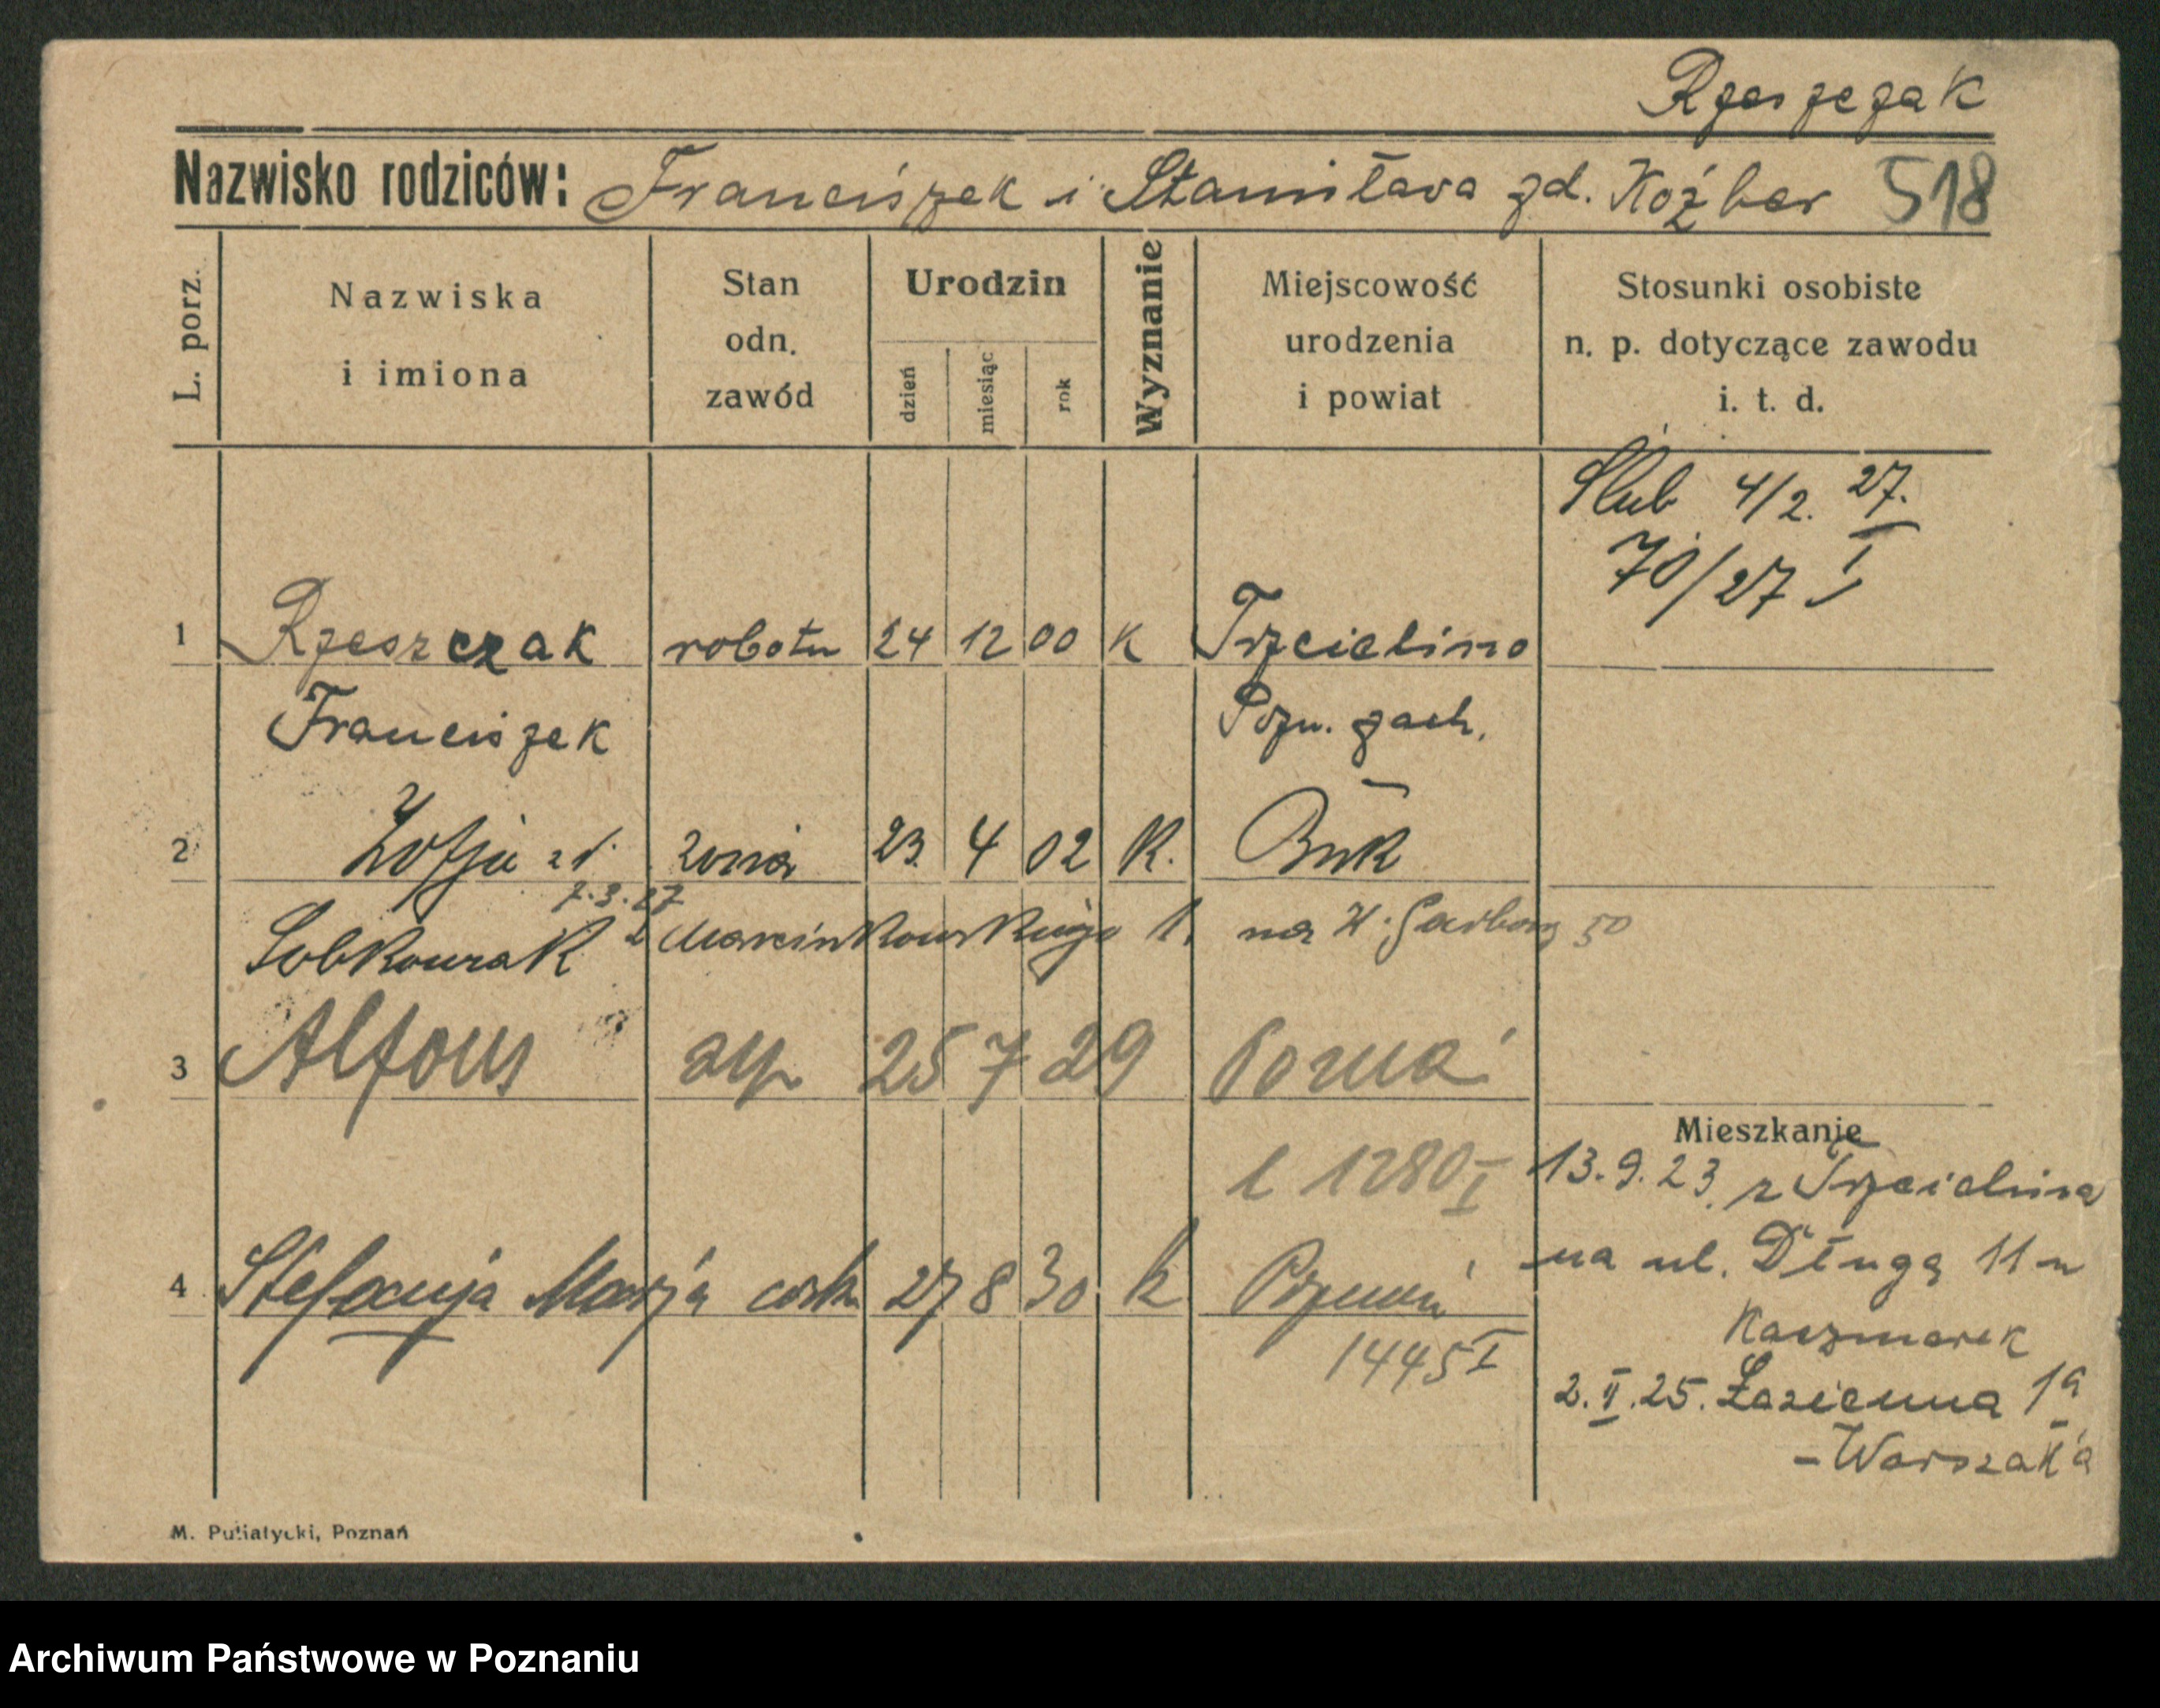 Rzeszczak
Nazwisko rodziców: Franciszek i Stanisława zd. Koźber 518
L. porz.
Nazwiska i imiona
Stan odn. zawód
Urodzin
dzień miesiąc rok
Wyznanie
Miejscowość urodzenia i powiat
Stosunki osobiste n. p. dotyczące zawodu i. t. d.
Ślub 4/2. 27.
70/27 I
1 Rzeszczak robotn 24 12 00 K Trzcielino
Franciszek Pozn. zach.
2 Zofja zd. żona 23. 4 02 K. Buk
7.3.27
Sobkowiak z Marcinkowskiego 1. na W. Garbary 50
3 Alfons syn 25 7 29 Pozna
Mieszkanie
l 1280 I
13.9.23. z Trzcielina
na ul. Długą 11 n
4 Stefanja Marja córk 27 8 30 k Poznań
Kaczmarek
1445 I
2.II.25. Łazienna 1a
-Warszak
M. Putiatycki, Poznań
Archiwum Państwowe w Poznaniu